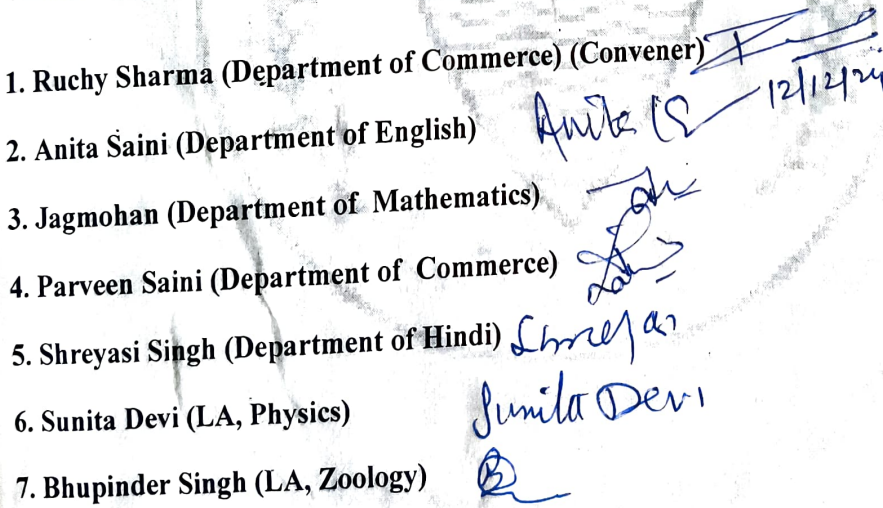 1. Ruchy Sharma (Department of Commerce) (Convener)
12/12/24
2. Anita Saini (Department of English) Anita
3. Jagmohan (Department of Mathematics)
4. Parveen Saini (Department of Commerce)
5. Shreyasi Singh (Department of Hindi) Shreyasi
6. Sunita Devi (LA, Physics) Sunita Devi
7. Bhupinder Singh (LA, Zoology)